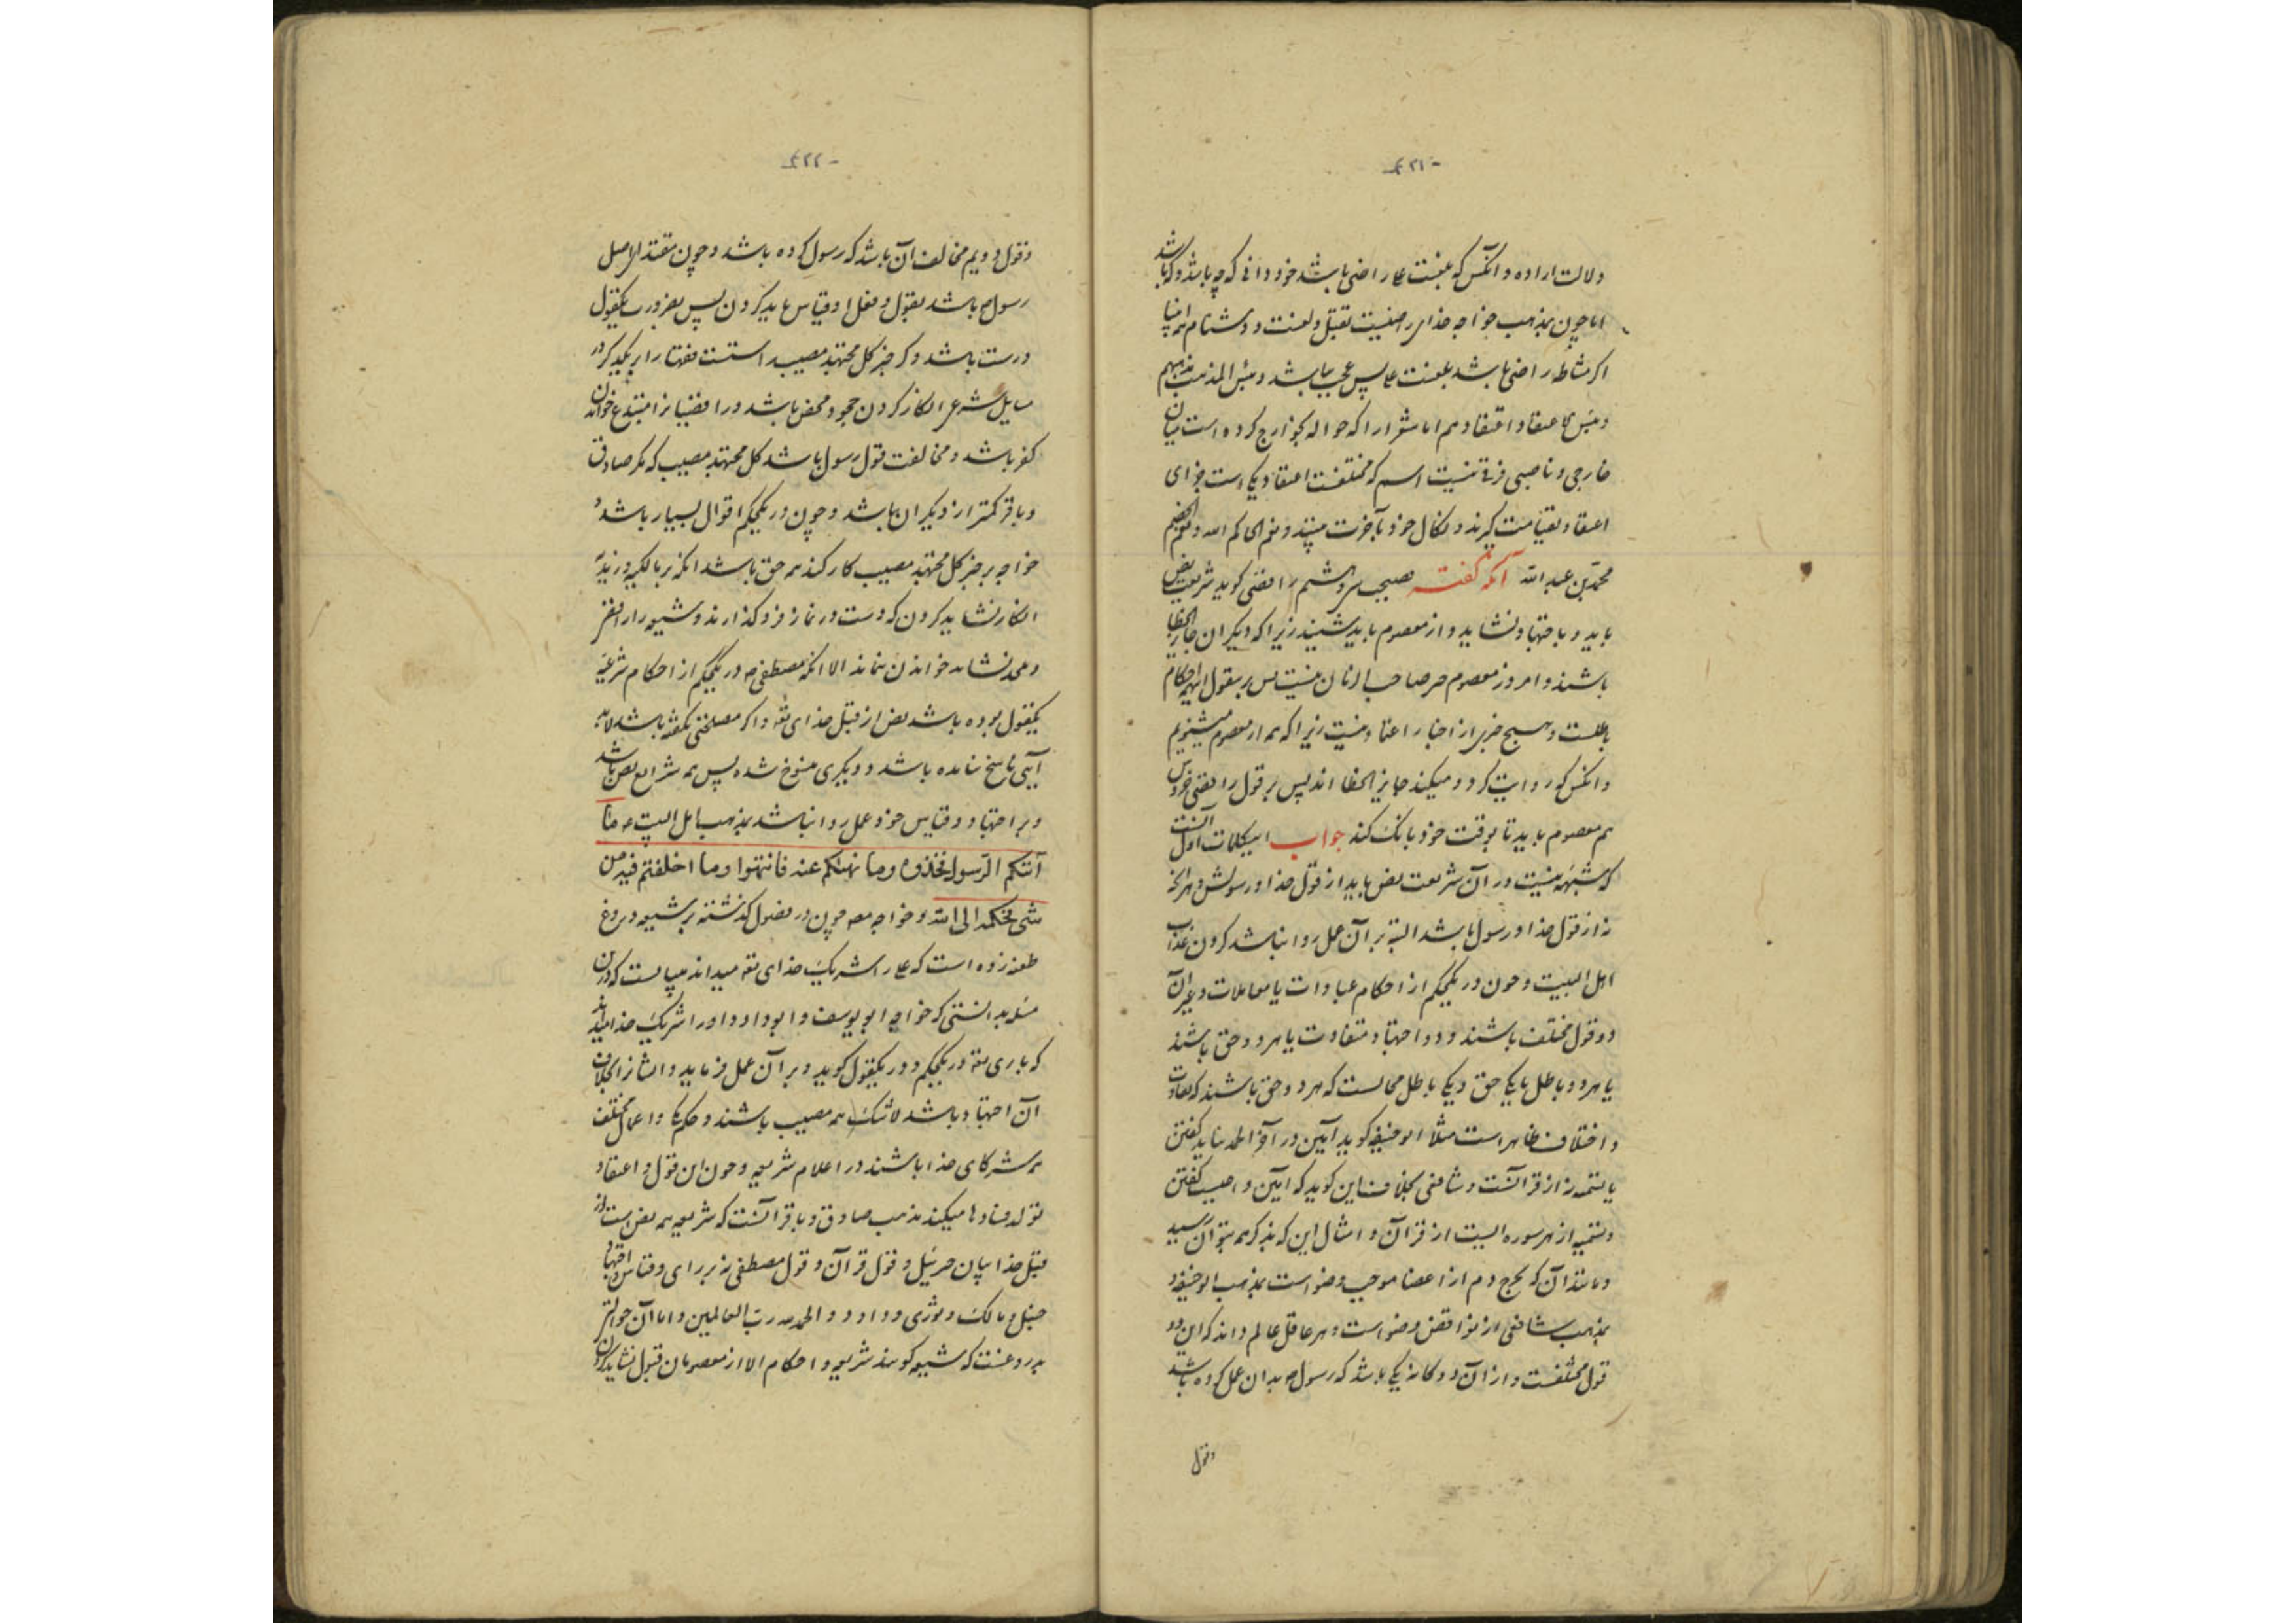 - ۴۲۱ -
ولالت اراده و آنکس که بلعنت علی راضی باشد خود دانی که چه باشد و که باشد
اما چون بمذهب خواجه خدای راضیست بقتل و لعنت و دشنام همه انبیا
اکر مشاطه راضی باشد بلعنت علی پس عجب نباشد و بئس المذهب مذهبهم
و بئس الاعتقاد اعتقادهم اما شعرا را که حواله بخوارج کرده است میان
خارجی و ناصبی فرقی نیست اسم که مختلفست اعتقاد یکی است جزای
اعتقاد بقیامت گیرند و نکال خود بآخرت بینند و نعم الحاکم الله و نعم الخصم
محمد بن عبد الله آنکه گفته نصیحت و ششم رافضی کوید شریعت بنص
باید و باجتهاد نشاید و از معصوم باید شنید زیرا که دیکران جایز الخطا
باشند و امروز معصوم جز صاحب الزمان نیست پس بقول همه احکام
باطلست و هیچ خبری از اخبار اعتماد نیست زیرا که نه از معصوم میشنویم
و آنکس که روایت کرد و میکند جایز الخطا اند پس بر قول رافضی خروس
هم معصوم باید تا بوقت خود بانک کند جواب این کلمات اول آنست
که شبهه نیست در آن شریعت بنص باید از قول خدا و رسولش و هر آنچه
نه از قول خدا و رسول باشد البته بر آن عمل روا نباشد کردن بمذهب
اهل البیت و چون در یکحکم از احکام عبادات یا معاملات و غیر آن
دو قول مختلف باشند و دو اجتهاد متفاوت یا هر دو حق باشند
یا هر دو باطل یا یکی حق و یکی باطل محالست که هر دو حق باشند که تفاوت
و اختلاف ظاهر است مثلا ابو حنیفه کوید آمین در آخر الحمد نباید کفتن
یا تسمیه نه از قرآنست و شافعی بخلاف این کوید که آمین واجبست کفتن
و تسمیه از هر سوره آیتست از قرآن و امثال این که بذکر همه نتوان رسید
و مانند آن که خرج دم از اعضا موجب وضو است بمذهب ابو حنیفه و نه
بمذهب شافعی از نواقض وضو است و هر عاقل عالم داند که این دو
قول مختلفست و از آن دوگانه یکی باشد که رسول ص بدان عمل کرده باشد
وقول
- ۴۲۲ -
وقول دویم مخالف آن باشد که رسول کرده باشد و چون مقتدای اصل
رسول ص باشد بقول و فعل او قیاس باید کردن پس بضرورت یکقول
درست باشد و کر خبر کل مجتهد مصیب راستست فقها را بر یکدیکر در
مسایل شرعی انکار کردن جحود محض باشد و رافضیانرا مبتدع خواندن
کفر باشد و مخالفت قول رسول باشد کل مجتهد مصیب که مکر صادق
و باقر کمتر از دیکران باشد و چون در یکحکم اقوال بسیار باشد و
خواجه بر خبر کل مجتهد مصیب کار کند همه حق باشد آنکه بر مالکیه و زیدیه
انکار نشاید کردن که دست در نماز فرو کذارند و شیعه را رافضی
و ملحد نشاید خواندن نماند الا آنکه مصطفی ص در یکحکم از احکام شرعیه
یکقول بوده باشد بنص از قبل خدای تعه و اکر مصلحتی بکفته باشد لابد
آیتی ناسخ نامده باشد و دیکری منسوخ شده پس همه شرایع بنص باشد
و بر اجتهاد و قیاس خود عمل روا نباشد بمذهب اهل البیت ع ما
آتیکم الرسول فخذوه وما نهیکم عنه فانتهوا وما اختلفتم فیه من
شی فحکمه الی الله و خواجه مصنف چون در فصول کذشته بر شیعه دروغ
طعنه زده است که علی را شریک خدای تعه میدانند میبایست که در این
مسئله بدانستی که خواجه ابو یوسف و ابو داود او را شریک خدا میدانند
که باری تعه در یکحکم و در یکقول کوید و بر آن عمل فرماید و ایشانرا بخلاف
آن اجتهاد باشد لاشک همه مصیب باشند و حکم یکی و اعمال مختلف
همه شرکای خدا باشند در اعلام شریعه و چون این قول و اعتقاد
تولد فسادها میکند مذهب صادق و باقر آنست که شریعه همه بنص است از
قبل خدا ببیان جبرئیل و قول قرآن و قول مصطفی نه برای و قیاس و اجتهاد
حنبل و مالک و ثوری و داود و الحمد لله رب العالمین و اما آن حوالتی
بدروغست که شیعه کویند شریعه و احکام الا از معصومان قبول نشاید کردن